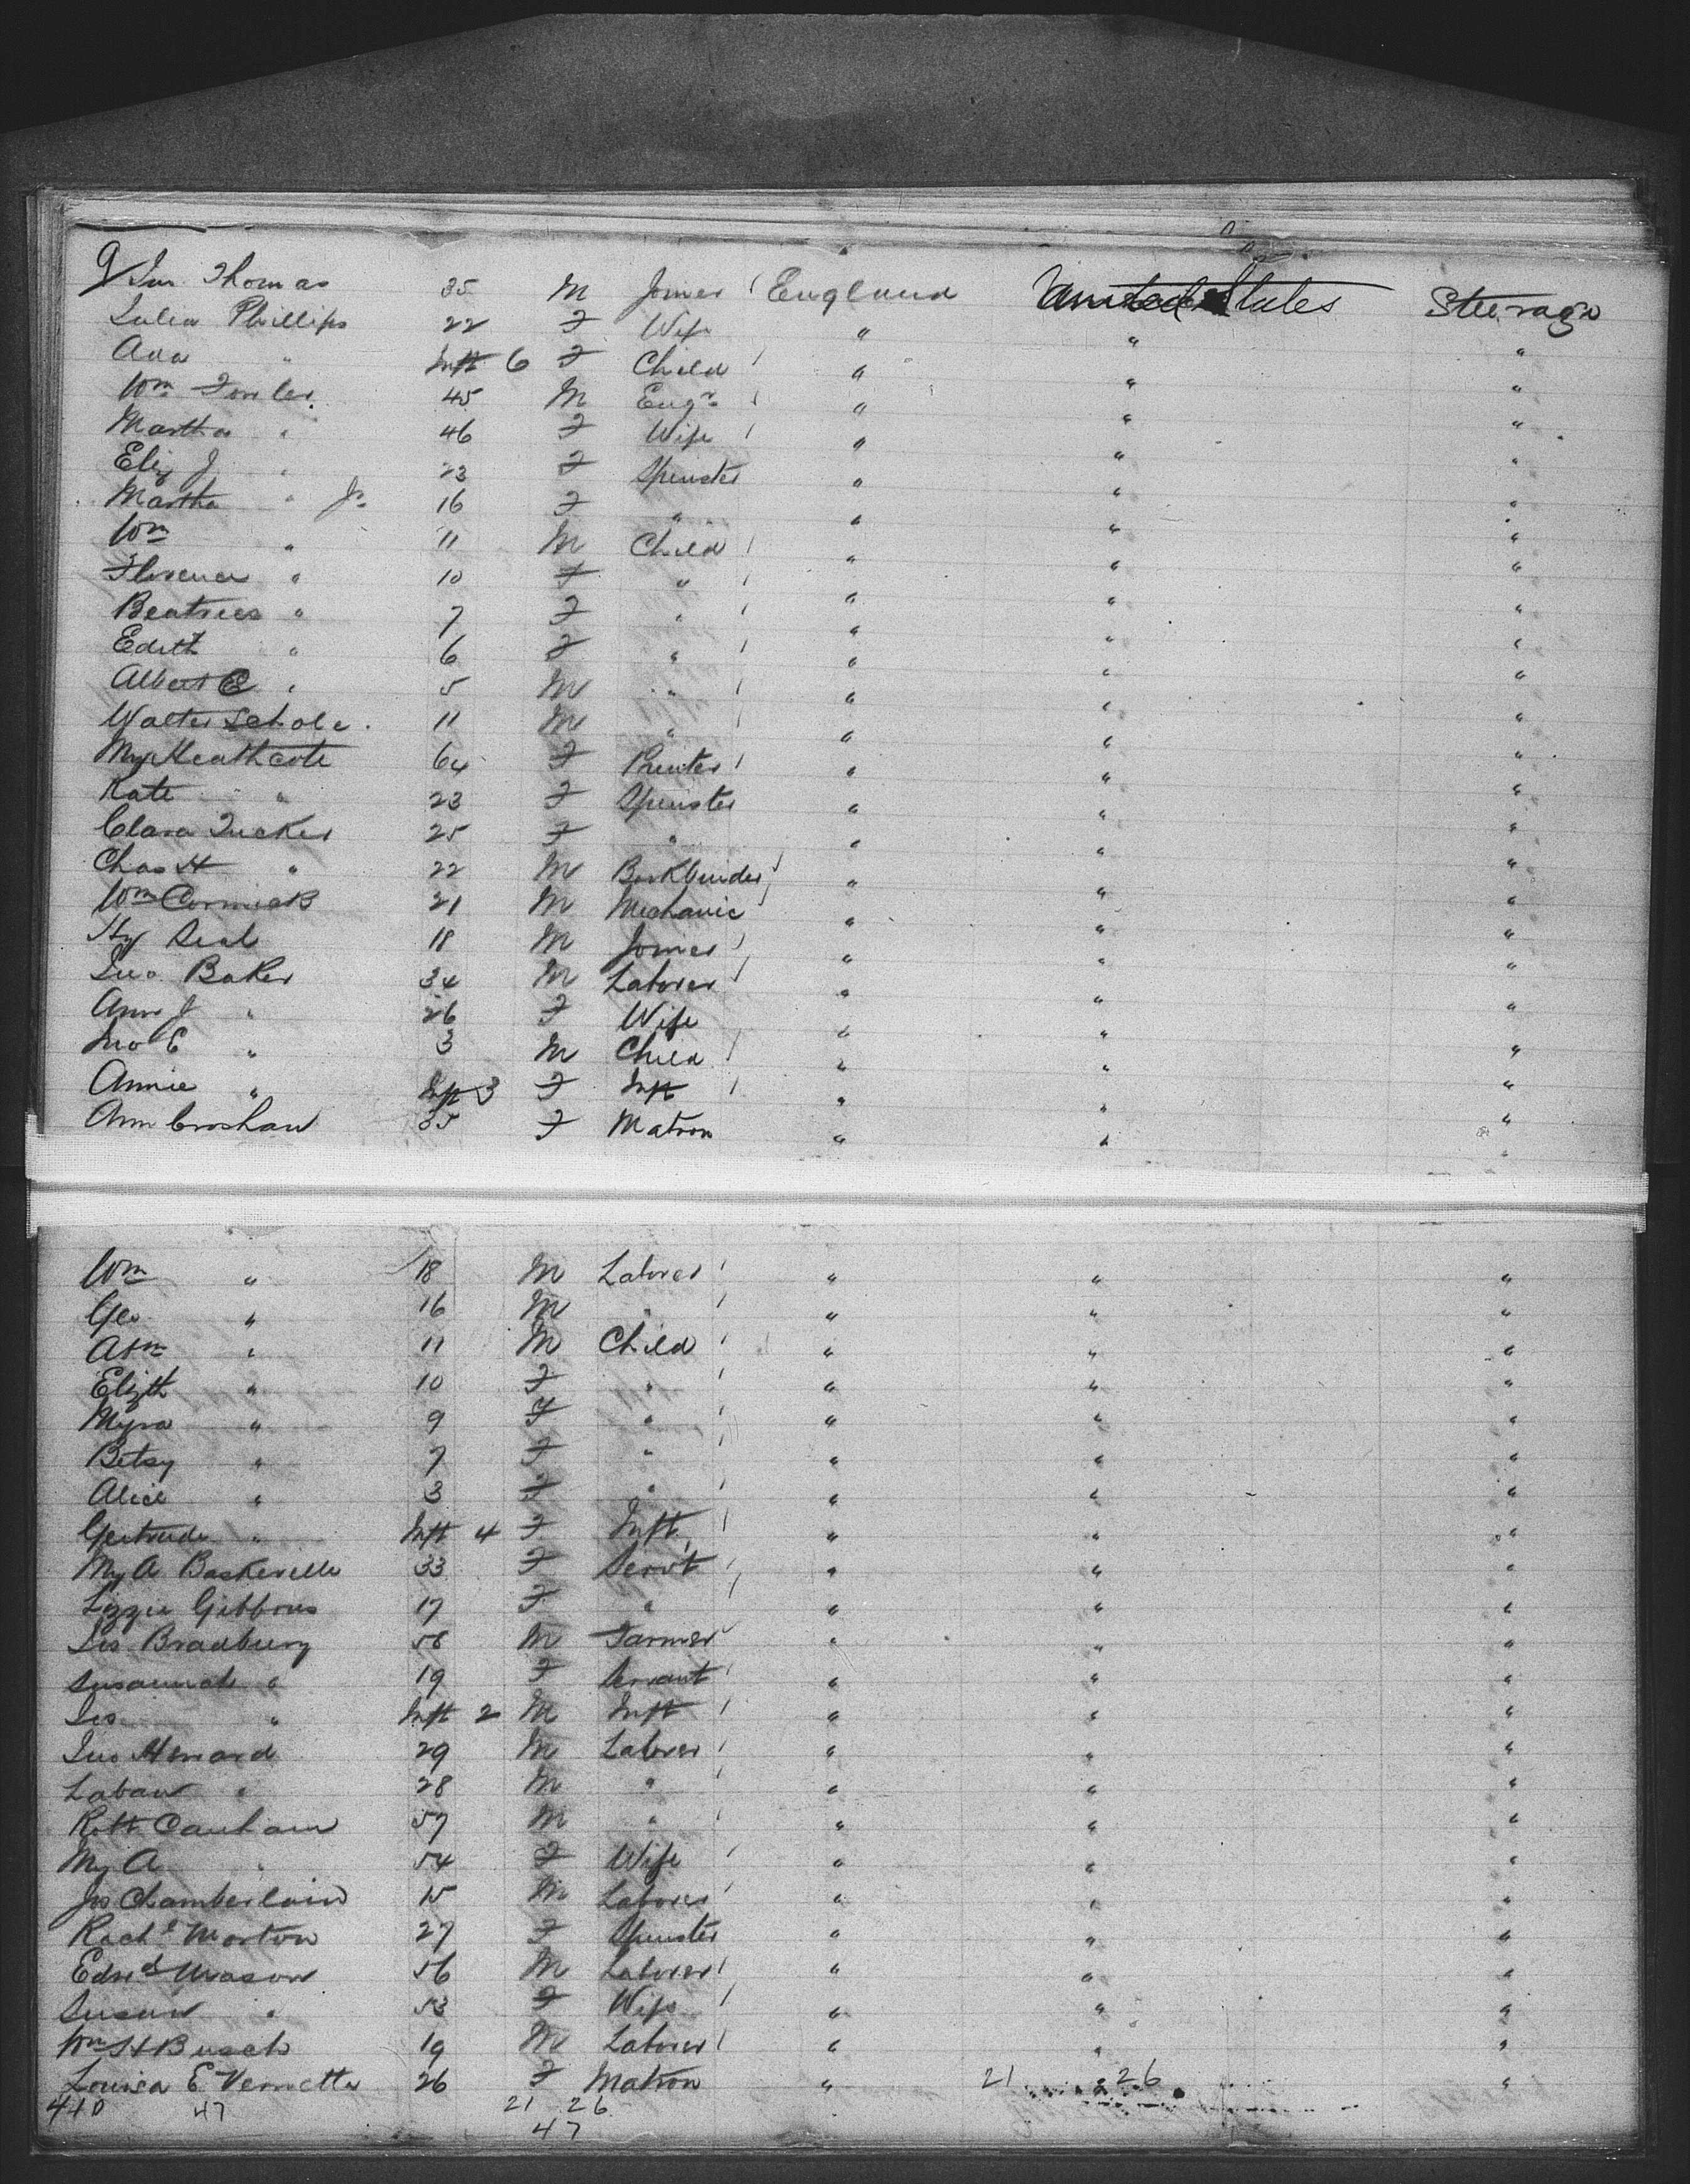 9 Jno Thomas 35 M Joiner England United States Steerage
Julia Phillips 22 F Wife " " "
Ada " Inft 6 F Child " " "
Wm Fowler 45 M Engr " " "
Martha " 46 F Wife " " "
Eliz J " 23 F Spinster " " "
Martha " Jr 16 F " " " "
Wm " 11 M Child " " "
Florence " 10 F " " " "
Beatrice " 7 F " " " "
Edith " 6 F " " " "
Albert E " 5 M " " " "
Walter 11 M " " " "
My Heathcote 64 F " " "
Kate " 23 F Spinster " " "
Clara Tucker 25 F " " " "
Chas H " 22 M Bookbinder " " "
Wm Cormick 21 M Mechanic " " "
Hy Seal 18 M Joiner " " "
Jno Baker 34 M Laborer " " "
Ann J " 26 F Wife " " "
Jno E " 3 M Child " " "
Annie " Inft 3 F Inft " " "
Ann Croshaw 35 F Matron " " "
Wm " 18 M Laborer " " "
Geo " 16 M " " " "
" 11 M Child " " "
Elizth " 10 F " " " "
Myra " 9 F " " " "
Betsy " 7 F " " " "
Alice " 3 F " " " "
Gertrude " Inft 4 F Inft " " "
My A Baskerville 33 F Servt " " "
Lizzie Gibbons 17 F " " " "
Jas Bradbury 58 M Farmer " " "
Susannah " 19 F Servant " " "
Jas " Inft 2 M Inft " " "
Jno 29 M Laborer " " "
Laban " 28 M " " " "
Robt Canham 57 M " " " "
My A " 54 F Wife " " "
Jos Chamberlain 15 M Laborer " " "
Rachl Morton 27 F Spinster " " "
Edwd Mason 56 M Laborer " " "
Susan " 53 F Wife " " "
Wm H Busch 19 M Laborer " " "
Louisa E 26 F Matron " 21 26 "
410 47 21 26
47